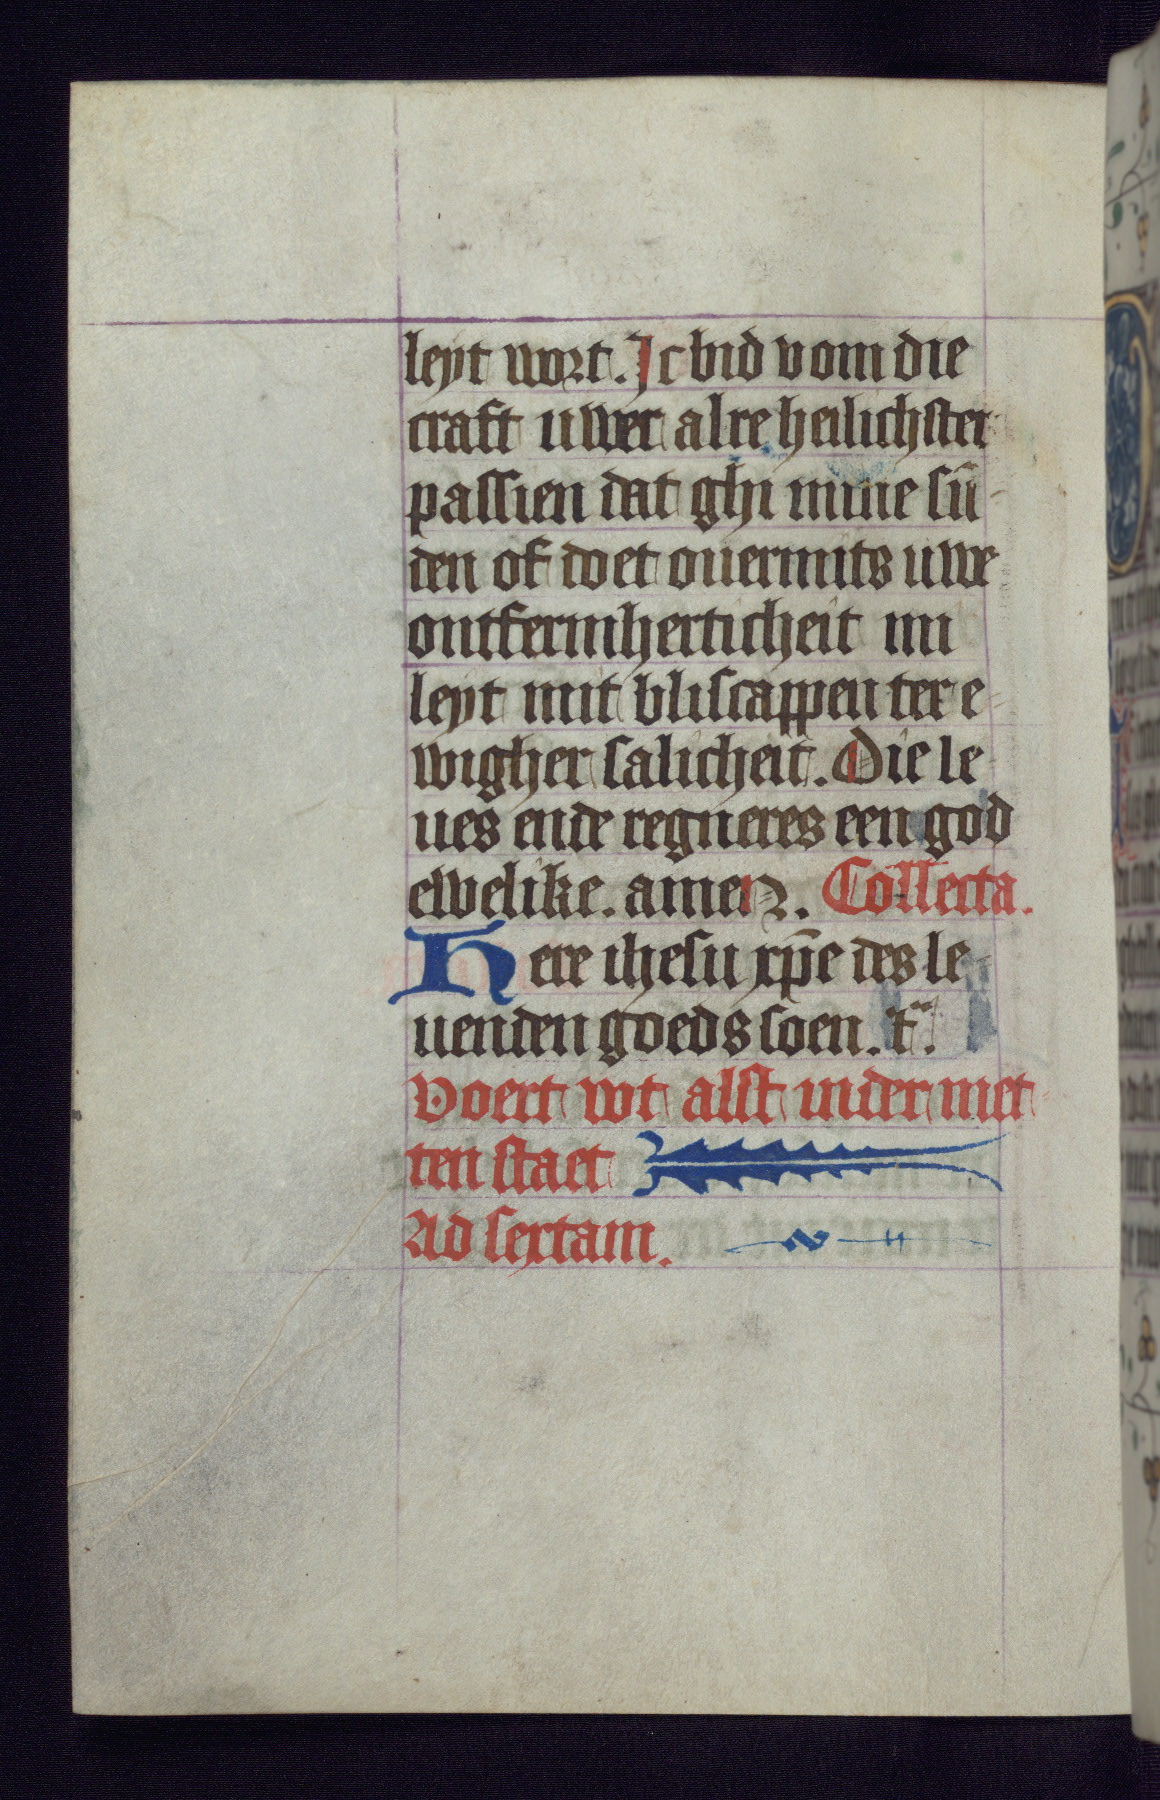 leyt wort. Ic bid v om die
craft uwer alre heilichster
passien dat ghi mine sū
den of doet ouermits uwe
ontfermherticheit mi
leyt mit bliscappen ter e
wigher salicheit. Die le
ues ende regneres een god
ewelike. amen. Collecta.
Here ihesu xp̄e des le
uenden goeds soen. t̄.
Voert wt alst inder met
ten staet
Ad sextam.